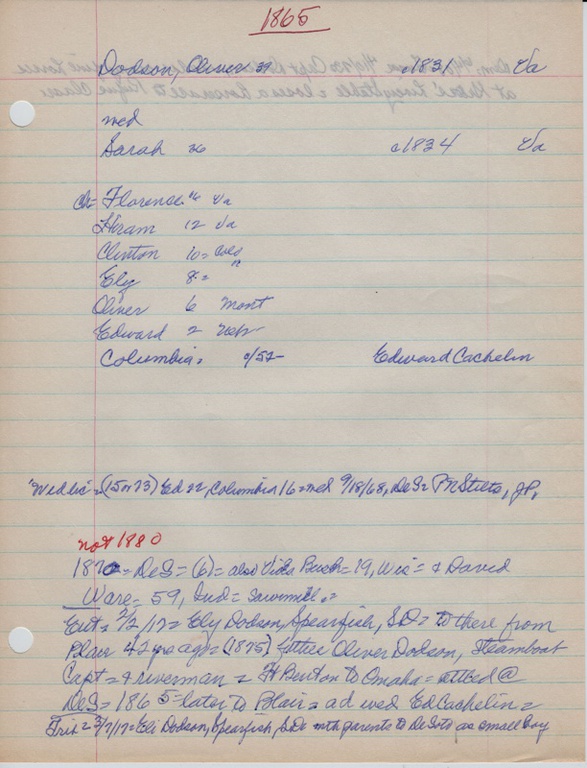 1865
Dodson, Oliver 39 c1831 Va
med
Sarah 36 c1834 Va
ch= Florence 16 Va
Hiram 12 Va
Clinton 10= Colo
Ely 8= "
Oliver 6 Mont
Edward 2 Neb
Columbia= c/52 Edward Cachelin
"Wed Lic"= (15 or 23) Ed 22, Columbia 16= med 9/18/68, DeS= M Stilts, JP,
not 1880
1870= DeS= (6)= also Vida Bush= 19, Wis= & David
Ware= 59, Ind= sawmill.=
Ent= 2/2/17= Ely Dodson, Spearfish, SD= to there from
Blair 42 yrs ago= (1875) father Oliver Dodson, Steamboat
Capt= & riverman= Ft Benton to Omaha= settled @
DeS= 1865= later to Blair= ad wed Ed Cachelin=
Trib= 3/7/17= Eli Dodson, Spearfish, SD= with parents to DeSoto as small boy